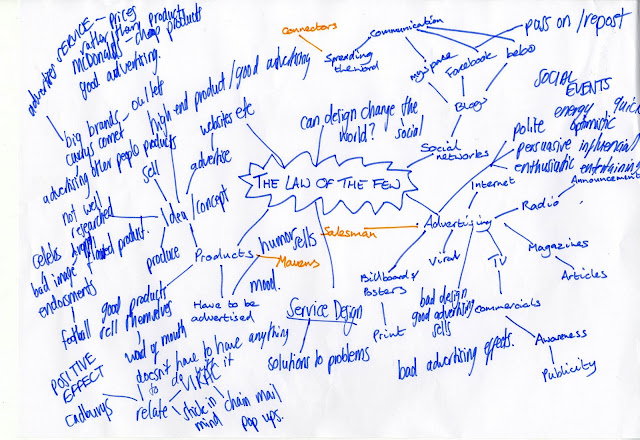 advertise SERVICE - prices
rather than product
McDonalds - cheap products
good advertising.
Connectors
Spreading
the word
communication
myspace
Facebook
bebo
pass on / repost
Blogs
SOCIAL
EVENTS
big brands - owl/left
currys comet
advertising other people products
sell
high end product / good advertising
websites etc
advertise
can design change the
world?
social
Social
networks
polite
energy
quick
optimistic
persuasive influencial
enthusiastic entertaining
Internet
Announcement
THE LAW OF THE FEW
not well
researched
Idea / concept
celebs
bad image
+ lasted product.
endorsments
produce
Products
humor sells
Mavens
Salesman
Advertising
Radio
Magazines
Articles
Viral
TV
Billboard &
Posters
Print
commercials
bad design
good advertising
sells
Awareness
Publicity
bad advertising effects.
mood.
Have to be
advertised
Service Design
solutions to problems
football
good products
sell themselves
word of mouth
doesn't have to have anything
to do with it
VIRAL
POSITIVE
EFFECT
cadburys
relate
stick in
mind
chain mail
pop ups.